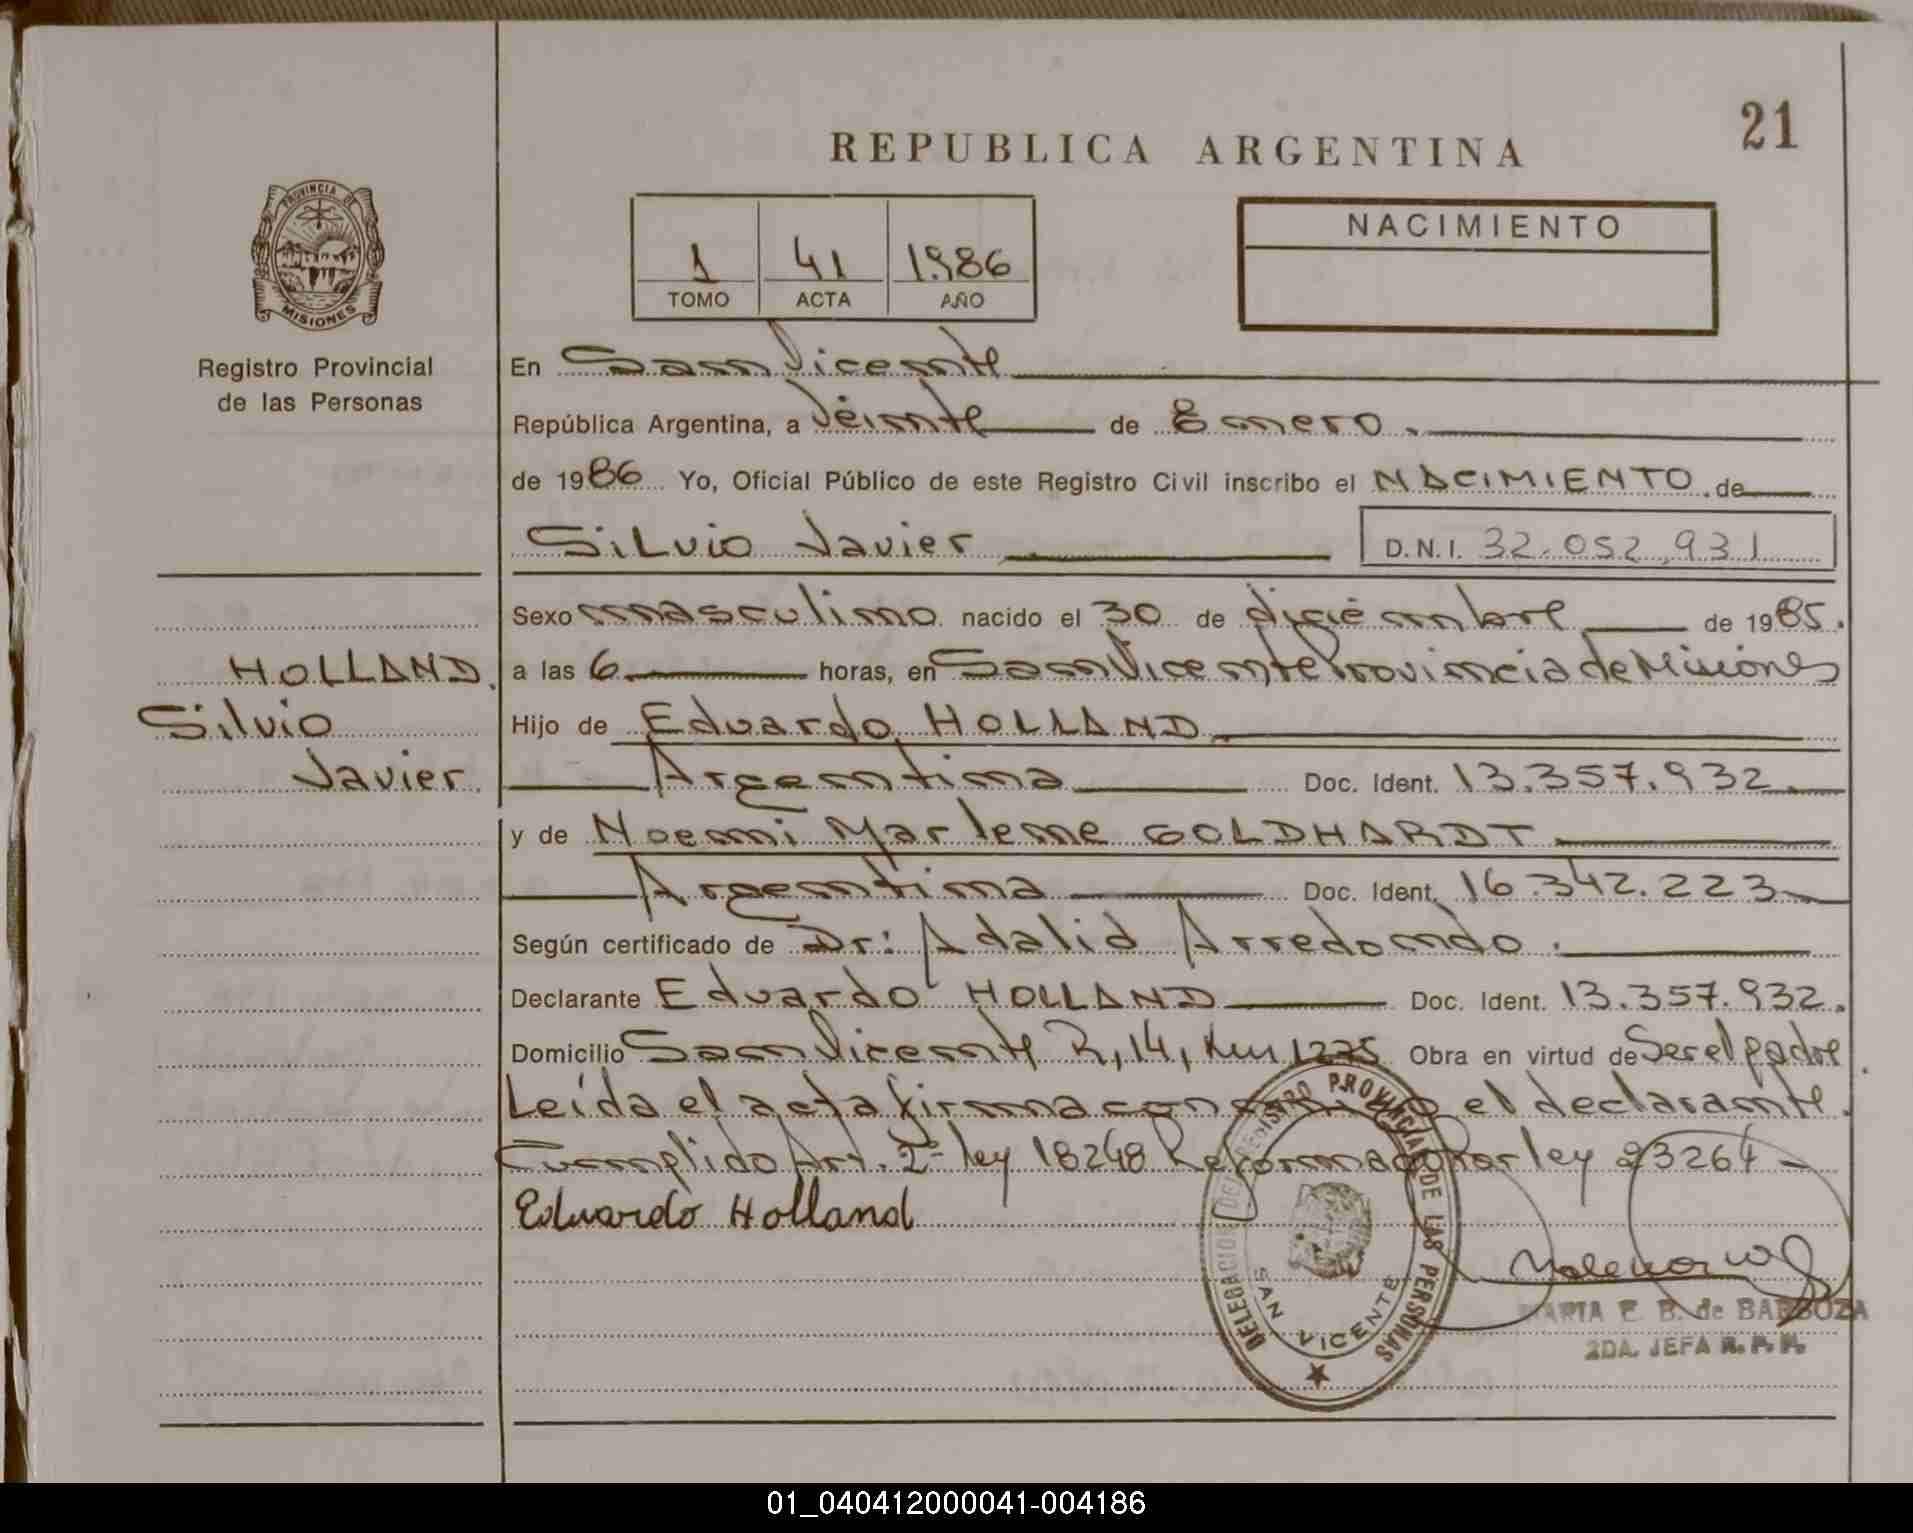 21
REPUBLICA ARGENTINA
PROVINCIA DE
MISIONES
Registro Provincial
de las Personas
1 41 1986
TOMO ACTA AÑO
NACIMIENTO
En San Vicente
República Argentina, a Veinte de Enero.
de 1986 Yo, Oficial Público de este Registro Civil inscribo el NACIMIENTO de
Silvio Javier D.N.I. 32.052.931
Sexo masculino nacido el 30 de diciembre de 1985.
HOLLAND
Silvio
Javier
a las 6 horas, en San Vicente Provincia de Misiones
Hijo de Eduardo HOLLAND
Argentina Doc. Ident. 13.357.932
y de Noemi Marlene GOLDHARDT
Argentina Doc. Ident. 16.342.223
Según certificado de Dr: Adalid Arredondo.
Declarante Eduardo HOLLAND Doc. Ident. 13.357.932.
Domicilio San Vicente R, 14, Km 1275 Obra en virtud de Ser el padre
Leída el acta firma conmigo el declarante.
Cumplido Art. 2º ley 18248 Reformado por ley 23264 -
Eduardo Holland
DELEGACION DEL REGISTRO PROVINCIAL DE LAS PERSONAS
SAN VICENTE
MARIA E. B. de BARBOZA
2DA. JEFA R. P. P.
01_040412000041-004186